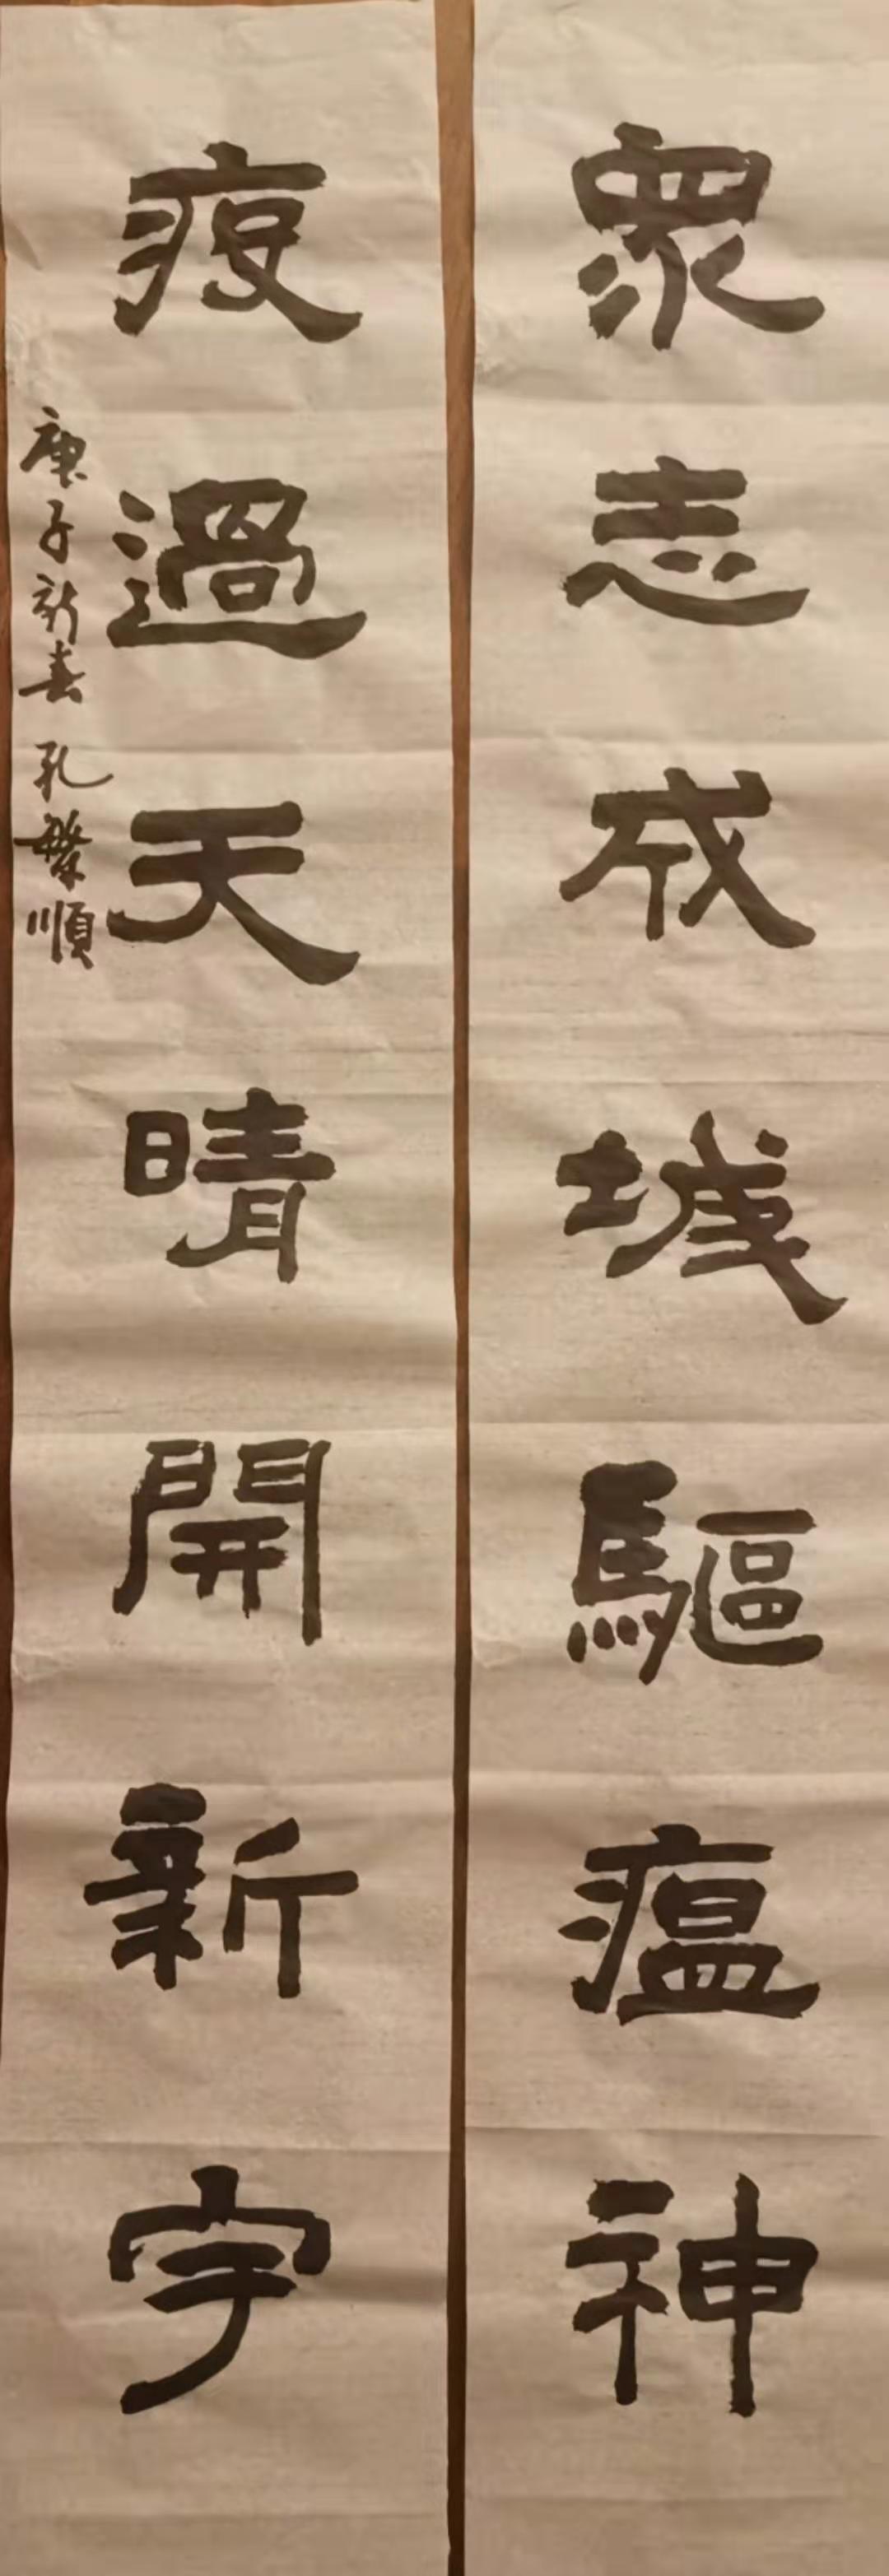 眾志成城驅瘟神
疫過天晴開新宇
庚子新春 孔繁順